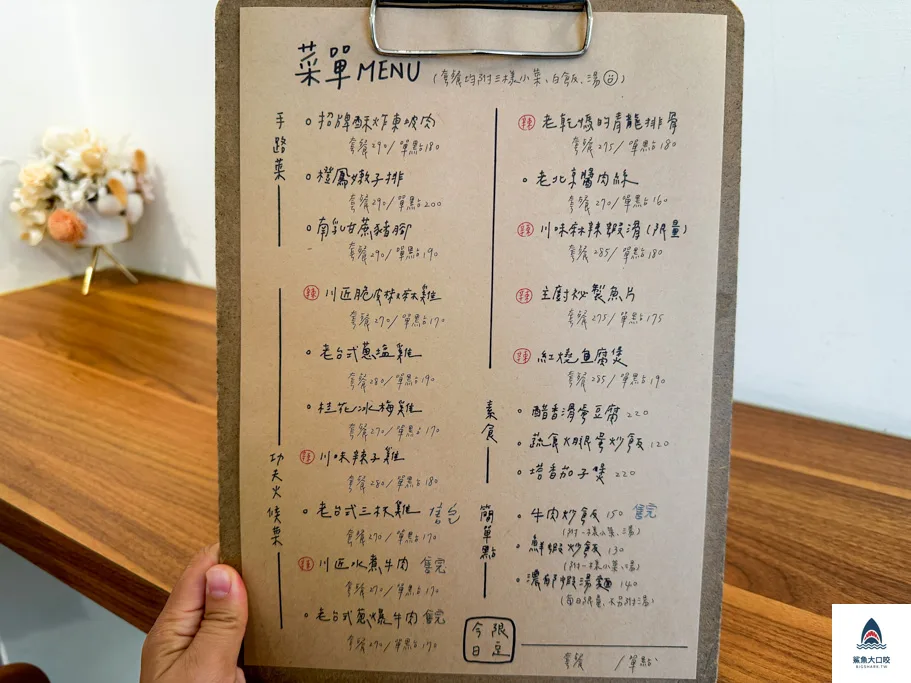 菜單 MENU (套餐均附三樣小菜、白飯、湯)
手路菜
招牌酥炸東坡肉
套餐290/單點180
橙鳳嫩子排
套餐290/單點200
南乳甘蔗豬腳
套餐290/單點190
辣 川匠脆皮椒麻雞
套餐270/單點170
老台式蔥塩雞
套餐280/單點190
桂花冰梅雞
套餐270/單點170
功夫火候菜
辣 川味辣子雞
套餐280/單點180
老台式三杯雞
套餐270/單點170
辣 川匠水煮牛肉 售完
套餐270/單點170
老台式蔥爆牛肉 售完
套餐270/單點170
辣 老乾媽的青龍排骨
套餐275/單點180
老北京醬肉絲
套餐270/單點160
辣 川味麻辣蝦滑(限量)
套餐285/單點180
辣 主廚炒製魚片
套餐275/單點175
辣 紅燒魚腐煲
套餐285/單點190
素食
醋香滑蛋豆腐 220
蔬食火腿蛋炒飯 120
塔香茄子煲 220
簡單點
牛肉炒飯 150 售完
(附一樣小菜、湯)
鮮蝦炒飯 130
(附一樣小菜、湯)
濃郁蝦湯麵 140
(每日限量,不另附湯)
今日限定
套餐 /單點
鯊魚大口咬
BIGSHARK.TW